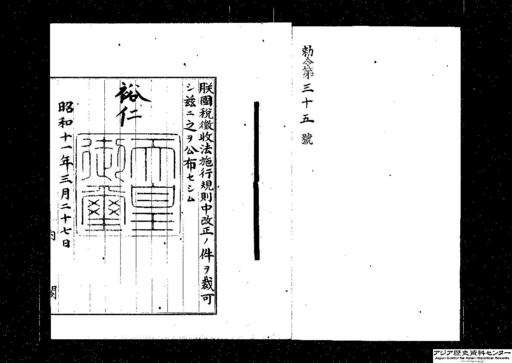 勅令第三十五號
朕國稅徵收法施行規則中改正ノ件ヲ裁可
シ茲ニ之ヲ公布セシム
裕仁
天皇
御璽
昭和十一年三月二十七日
内閣
アジア歴史資料センター
Japan Center for Asian Historical Records